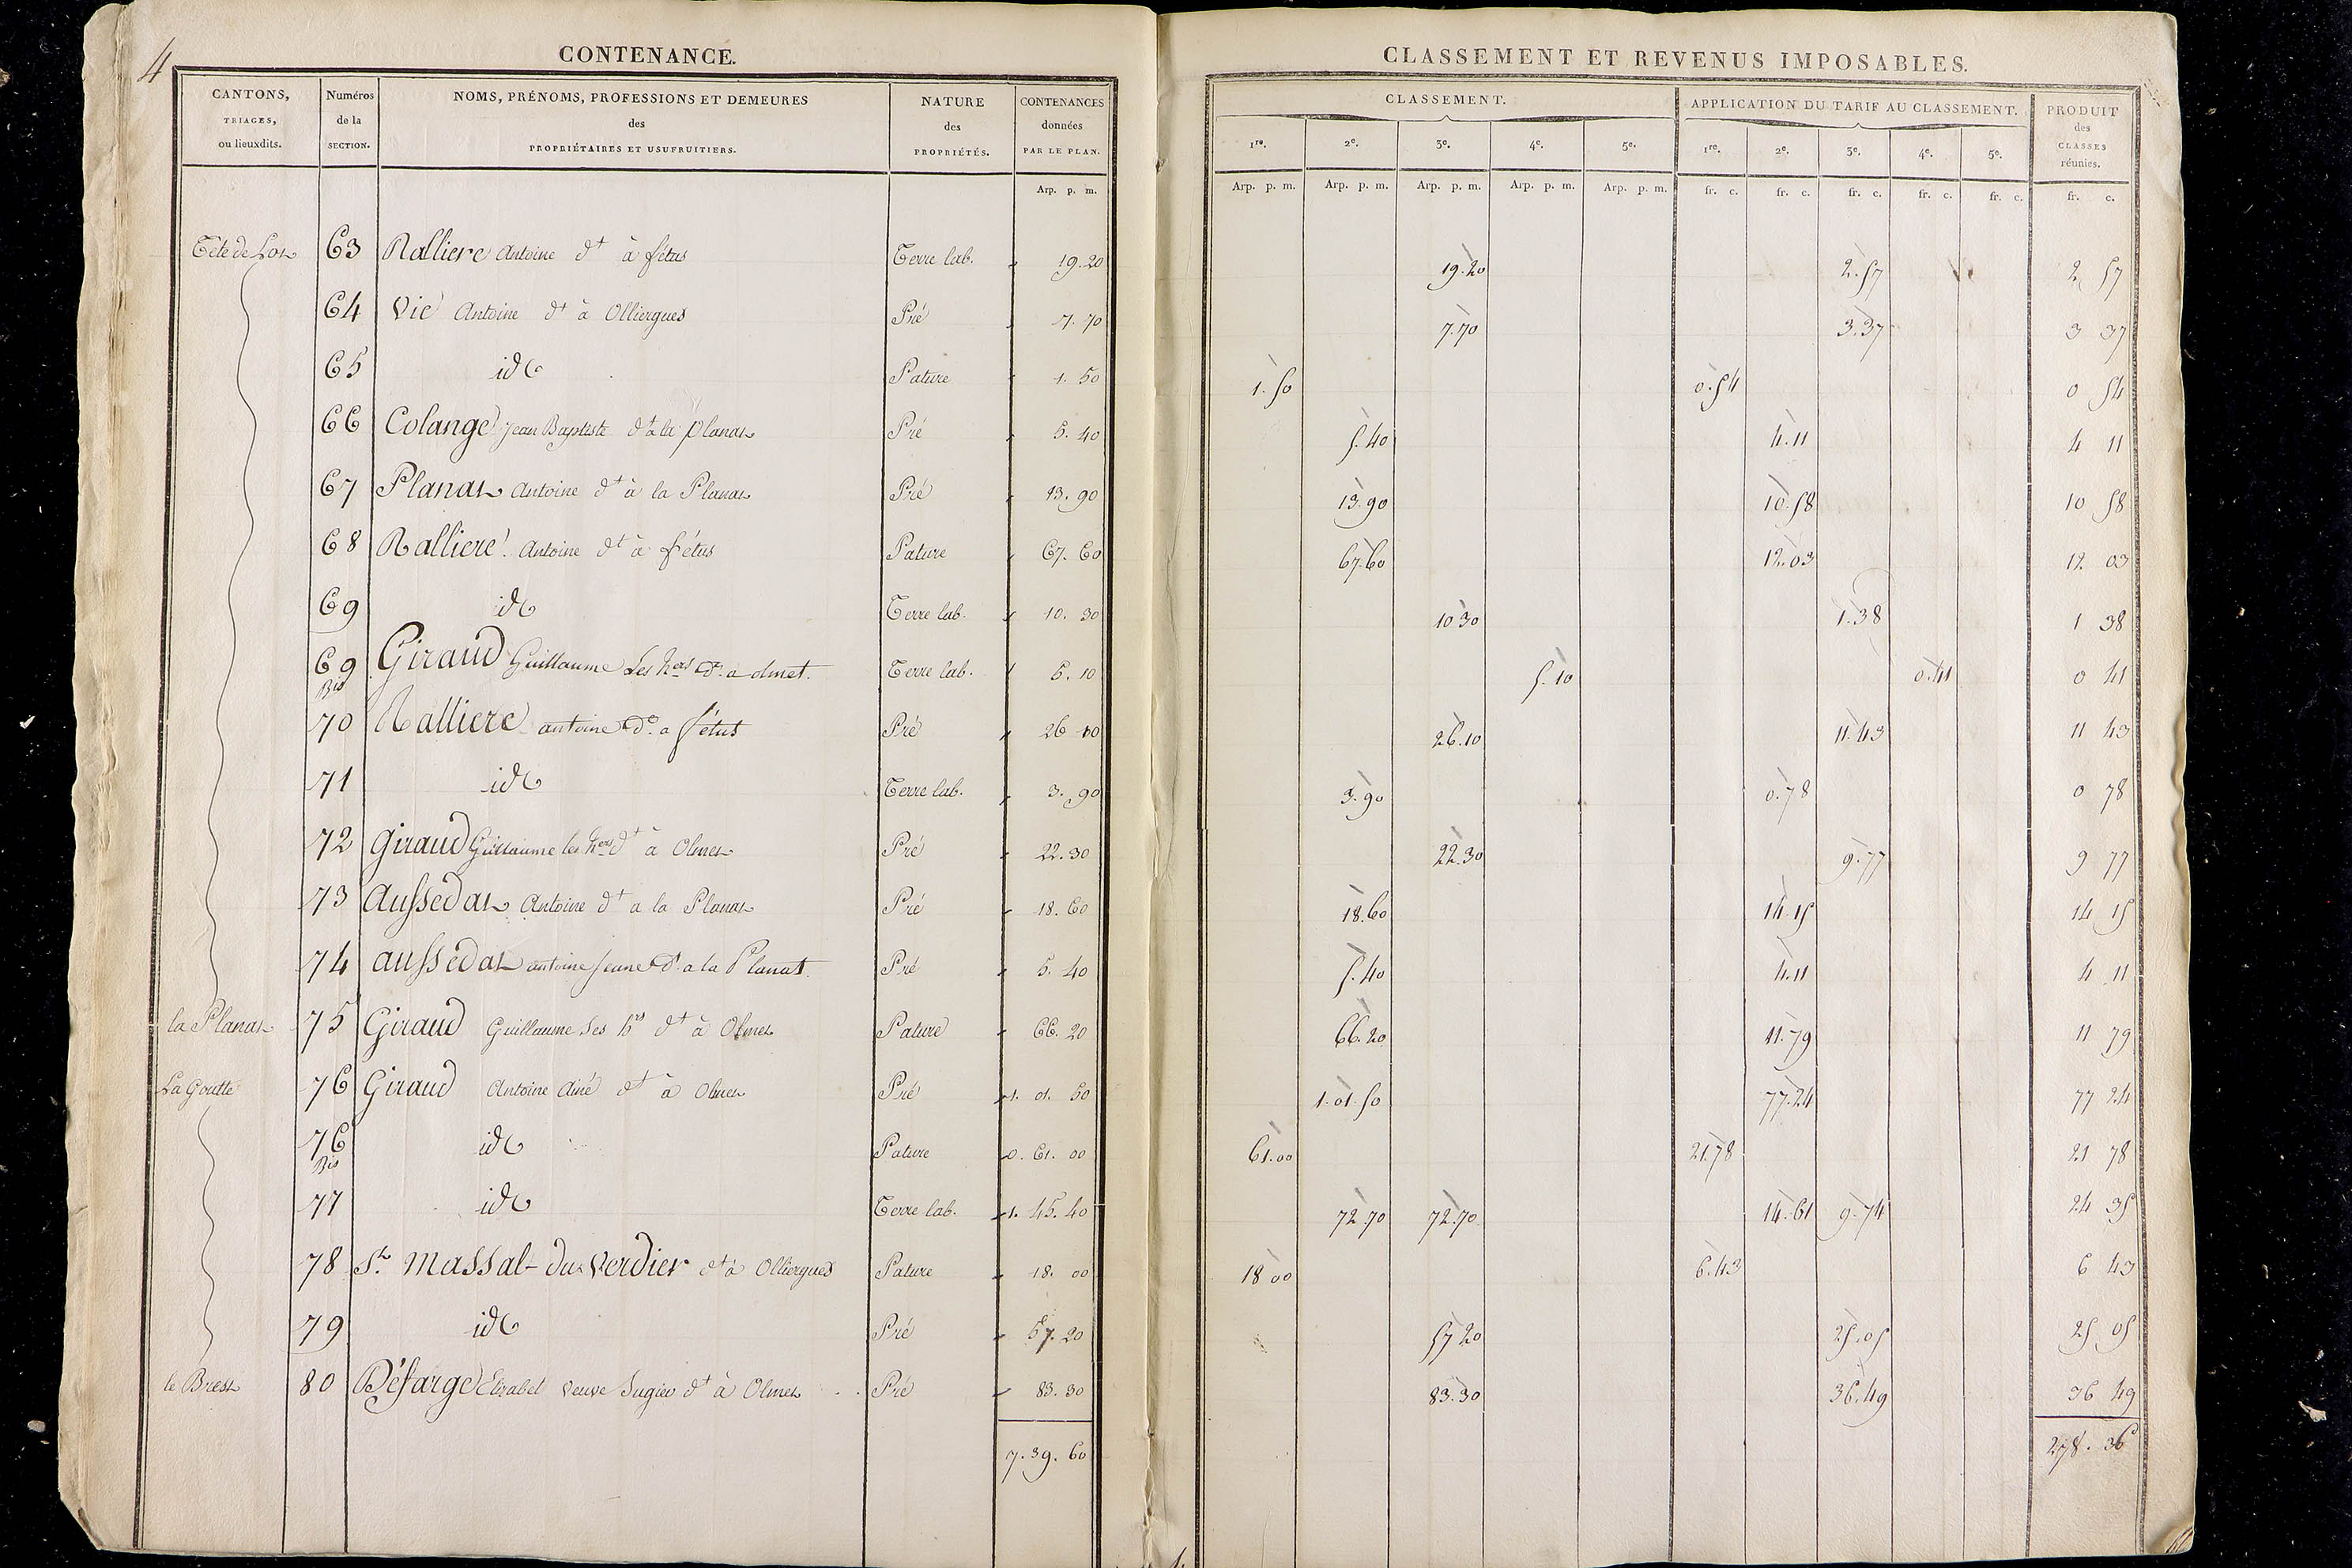 4
CONTENANCE.
CANTONS, TRIAGES, ou lieuxdits. Numéros de la SECTION. NOMS, PRÉNOMS, PROFESSIONS ET DEMEURES des PROPRIÉTAIRES ET USUFRUITIERS. NATURE des PROPRIÉTÉS. CONTENANCES données PAR LE PLAN.
Arp. p. m.
CLASSEMENT ET REVENUS IMPOSABLES.
CLASSEMENT. APPLICATION DU TARIF AU CLASSEMENT. PRODUIT des CLASSES réunies.
1re. 2e. 3e. 4e. 5e. 1re. 2e. 3e. 4e. 5e.
Arp. p. m. Arp. p. m. Arp. p. m. Arp. p. m. Arp. p. m. fr. c. fr. c. fr. c. fr. c. fr. c. fr. c.
Tête de 63 Ralliere Antoine dt à fétus Terre lab. 19.20 19.20 2.57 2 57
64 Vic Antoine dt à Olliergues Pré 7.70 7.70 3.37 3 37
65 id Pature 1.50 1.50 0.54 0 54
66 Colange Jean Baptiste dt à la Planat Pré 5.40 5.40 4.11 4 11
67 Planat Antoine dt à la Planat Pré 13.90 13.90 10.58 10 58
68 Ralliere Antoine dt à fétus Pature 67.60 67.60 12.03 12 03
69 id Terre lab. 10.30 10 30 1.38 1 38
69 Bis Giraud Guillaume Les hers dt a olmet. Terre lab. 5.10 5.10 0.41 0 41
70 Ralliere antoine dt a fétus Pré 26 10 26.10 11.43 11 43
71 id Terre lab. 3.90 3.90 0.78 0 78
72 Giraud Guillaume les hers dt à Olmet Pré 22.30 22.30 9.77 9 77
73 Aussedat Antoine dt a la Planat Pré 18.60 18.60 14.15 14 15
74 aussedat antoine jeune dt a la Planat. Pré 5.40 5.40 4.11 4 11
la Planat 75 Giraud Guillaume Ses hrs dt à Olmet Pature 66.20 66.20 11.79 11 79
La Goutte 76 Giraud Antoine Ainé dt à Olmet Pré 1.01.50 1.01.50 77.24 77 24
76 Bis id Pature 0.61.00 61.00 21.78 21 78
77 id Terre lab. 1.45.40 72.70 72.70 14.61 9.74 24 35
78 Sr. Massal-du Verdier dt à Olliergues Pature 18.00 18 00 6.43 6 43
79 id Pré 57.20 57 20 25.05 25 05
le Brest 80 Défarge Elizabet veuve Sugier dt à Olmet Pré 83.30 83.30 36.49 36 49
7.39.60 278.36